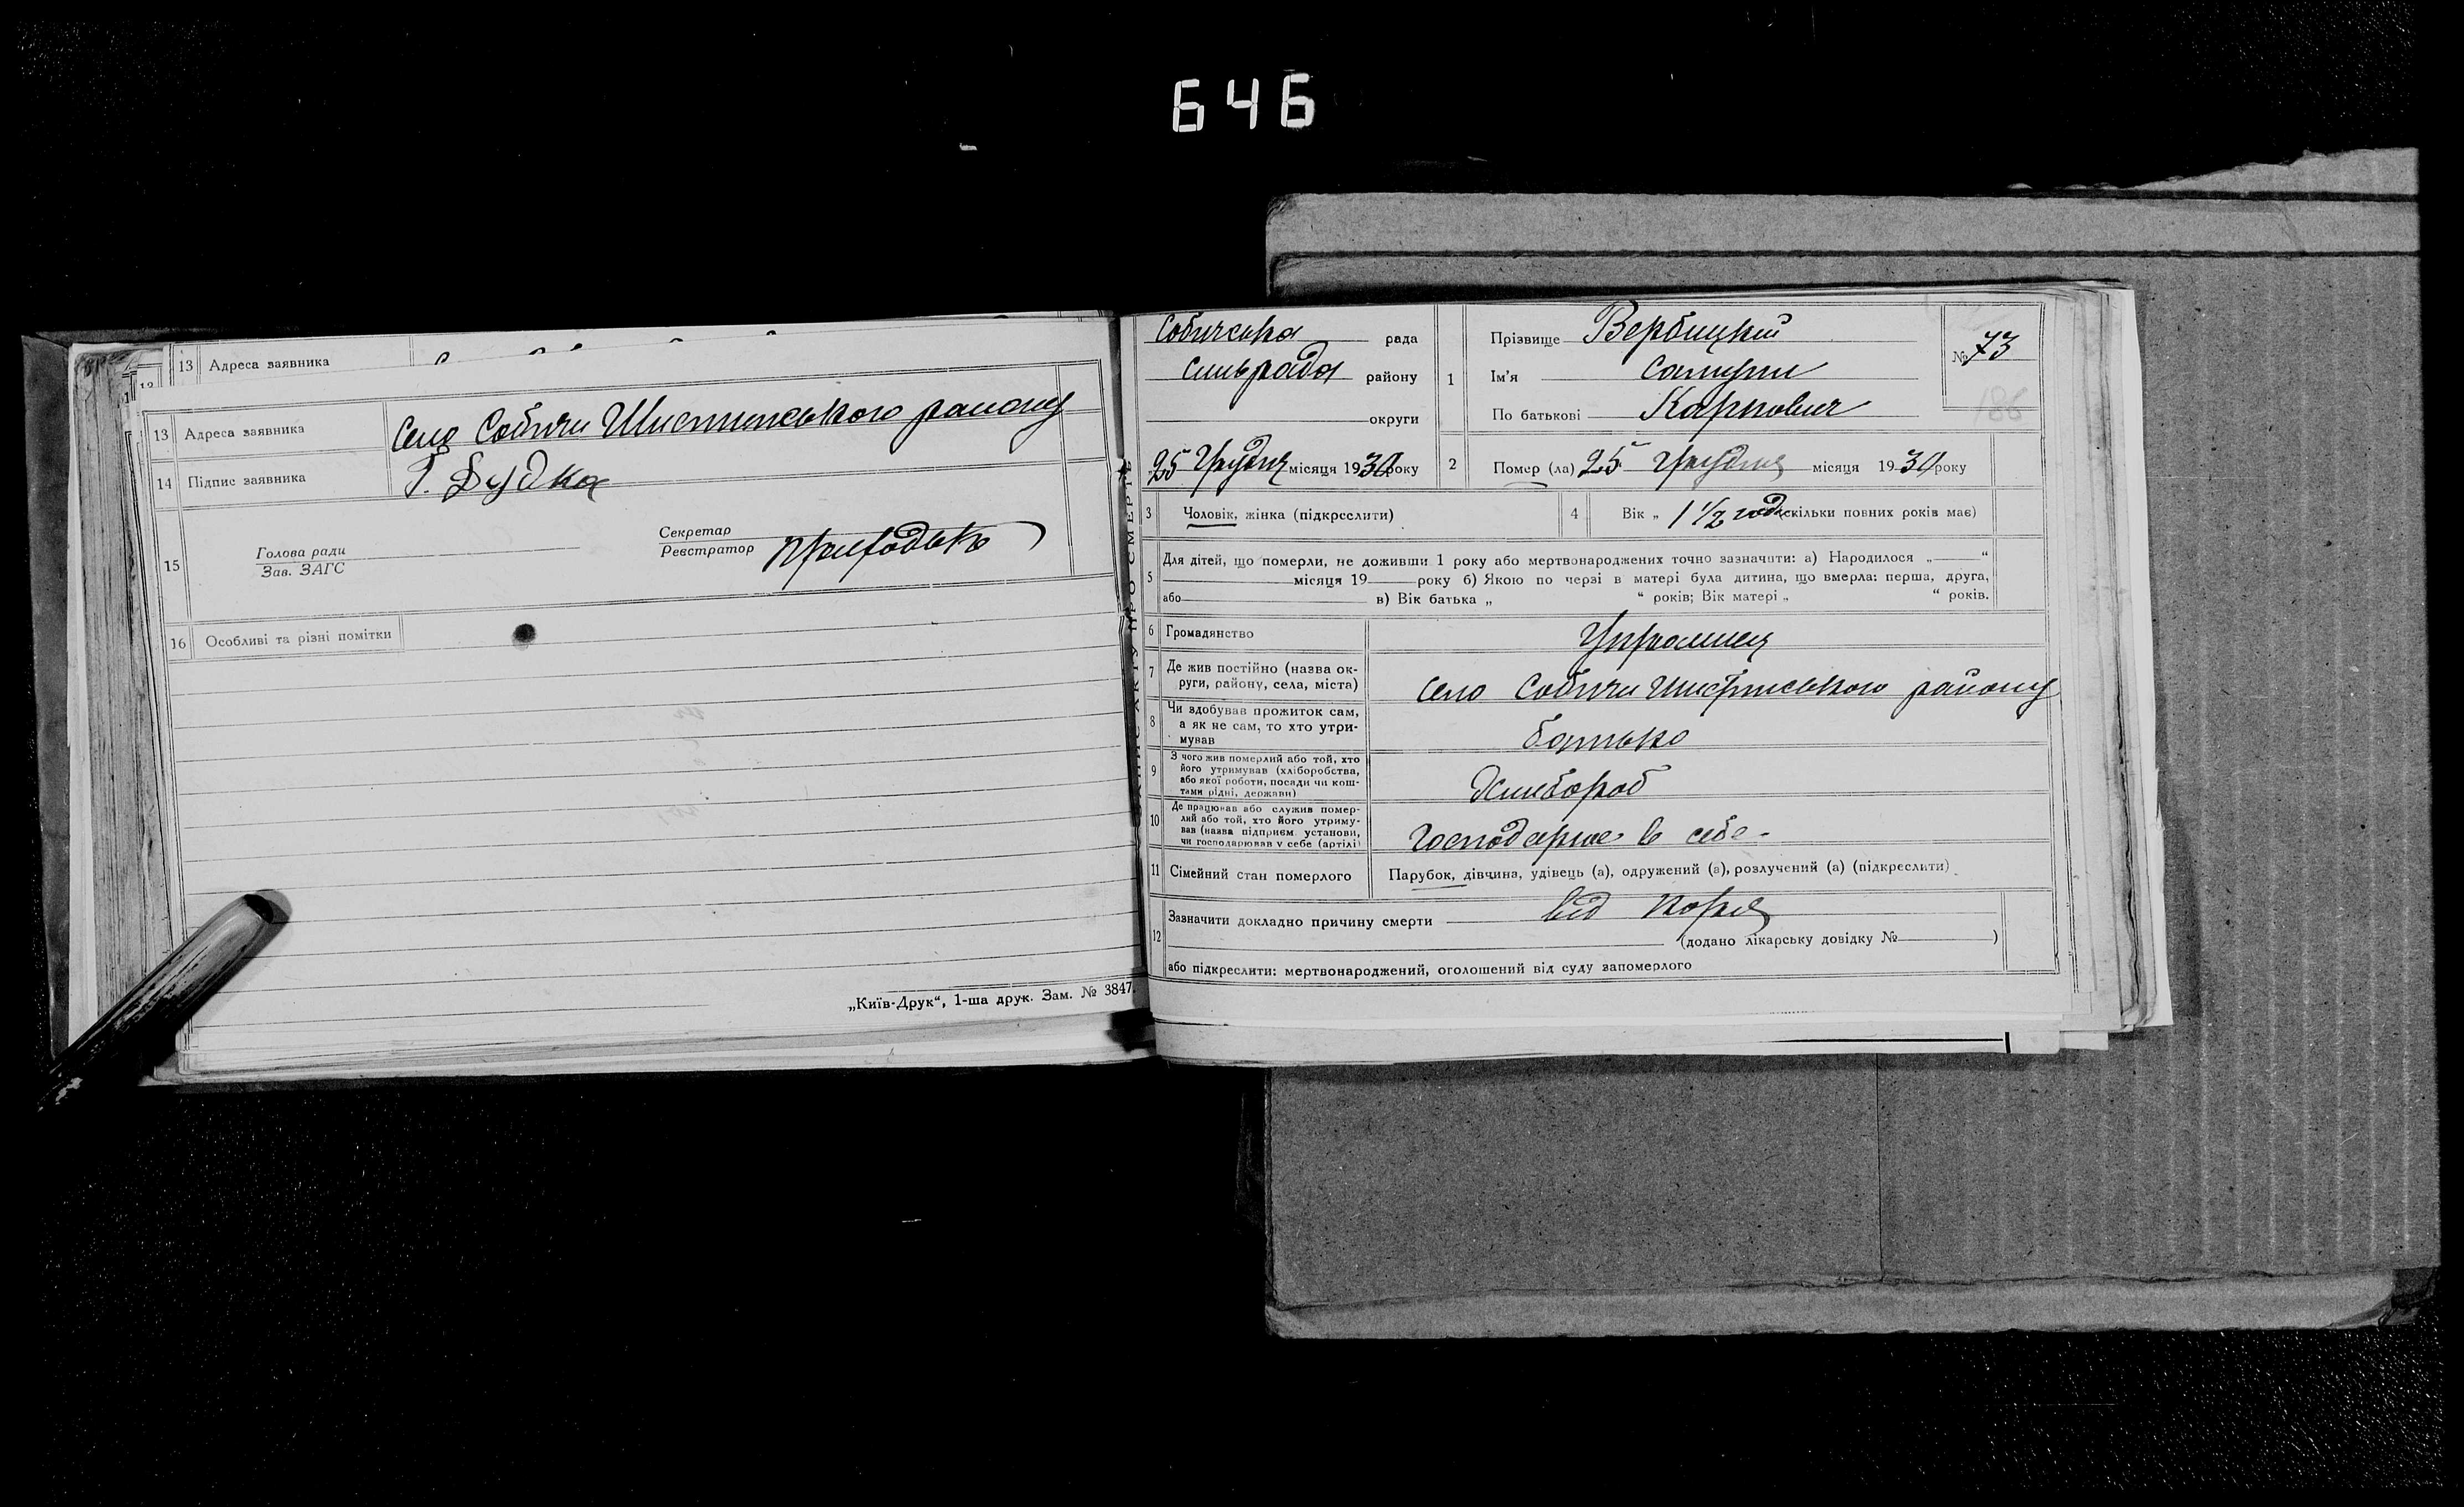 646
13 Адреса заявника
13 Адреса заявника Село Собичи Шистинського району
14 Підпис заявника Г. Дудка
15 Голова ради
Зав. ЗАГС
Секретар
Реєстратор
16 Особливі та різні помітки
„Київ-Друк“, 1-ша друк. Зам. № 3847.
Собичська рада
Сильрада району
округи
25 Грудня місяця 1930 року
1 Прізвище Вербицкий
Ім'я
По батькові Карпович
№ 73
186
2 Помер (ла) 25 Грудня місяця 1930 року
3 Чоловік, жінка (підкреслити)
4 Вік „ 1 1/2 год скільки повних років має)
5 Для дітей, що померли, не доживши 1 року або мертвонароджених точно зазначити: а) Народилося „ “
місяця 19 року б) Якою по черзі в матері була дитина, що вмерла: перша, друга,
або в) Вік батька „ “ років; Вік матері „ “ років.
6 Громадянство Украинец
7 Де жив постійно (назва округи, району, села, міста) село Собичи Шистинського району
8 Чи здобував прожиток сам,
а як не сам, то хто утримував
батько
9 З чого жив померлий або той, хто
його утримував (хліборобства,
або якої роботи, посади чи коштами рідні, держави)
Хлибороб
10 Де працював або служив померлий або той, хто його утримував (назва підприєм. установи,
чи господарював у себе (артілі)
Господарює в себе
11 Сімейний стан померлого Парубок, дівчина, удівець (а), одружений (а), розлучений (а) (підкреслити)
12 Зазначити докладно причину смерти Від Корея
(додано лікарську довідку № )
або підкреслити: мертвонароджений, оголошений від суду запомерлого